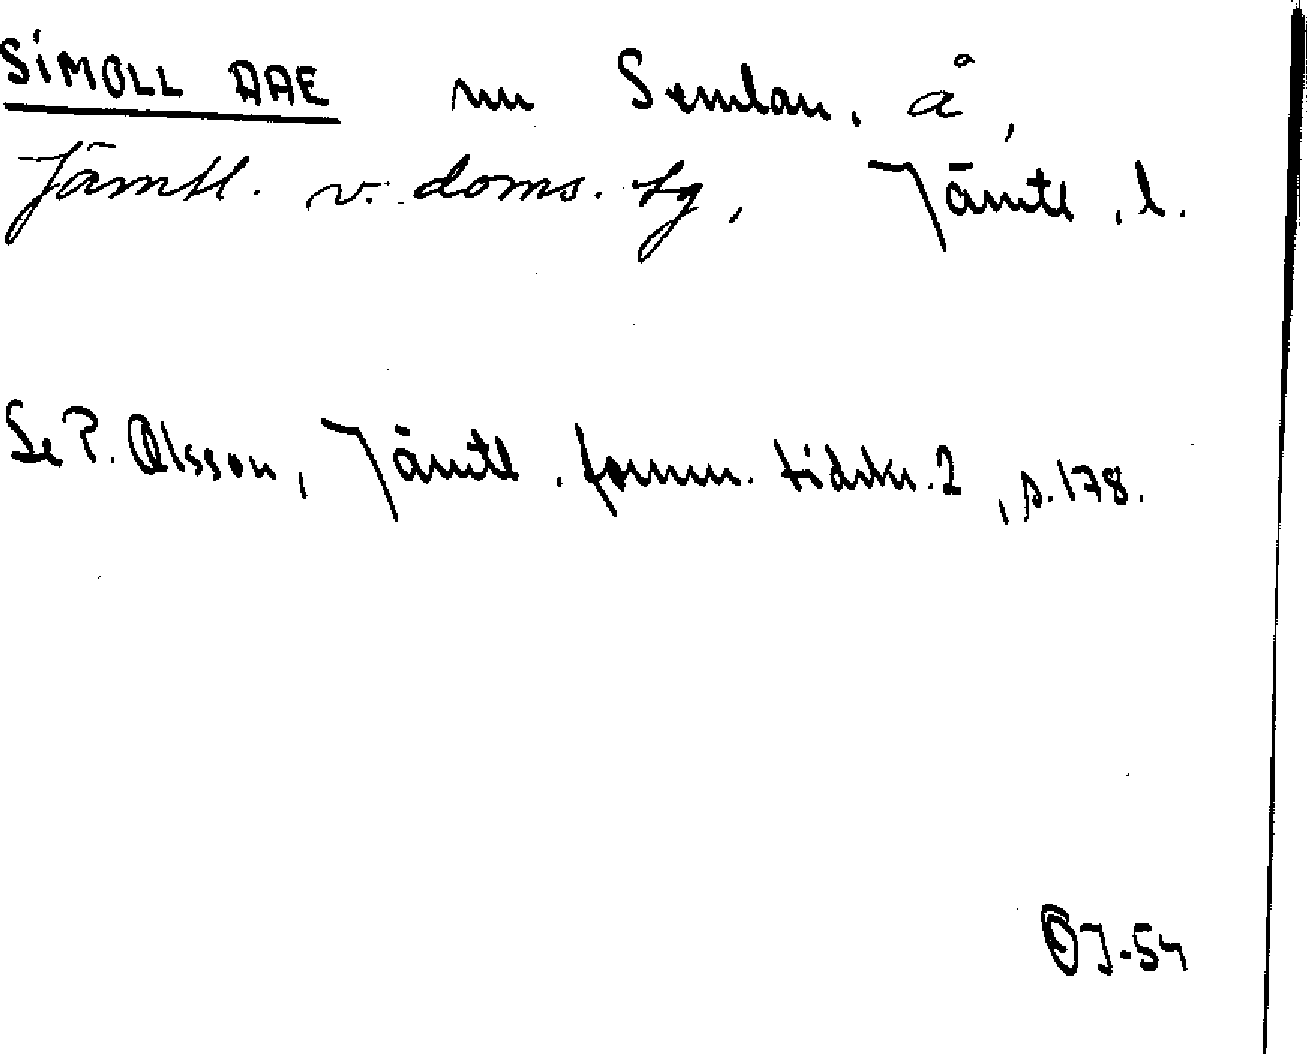 SIMOLL AAE nu Semlan, å,
Jämtl. v. doms. tg, Jämtl. l.
Se P. Olsson, Jämtl. fornm. tidskr. 2, s. 178.
OJ-54